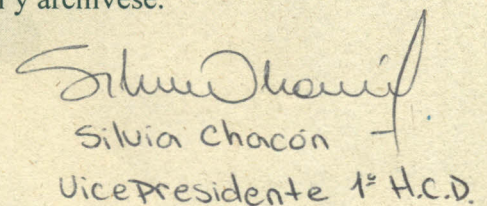 y archívese.
Silvia Chacón
Silvia Chacón
Vicepresidente 1º H.C.D.